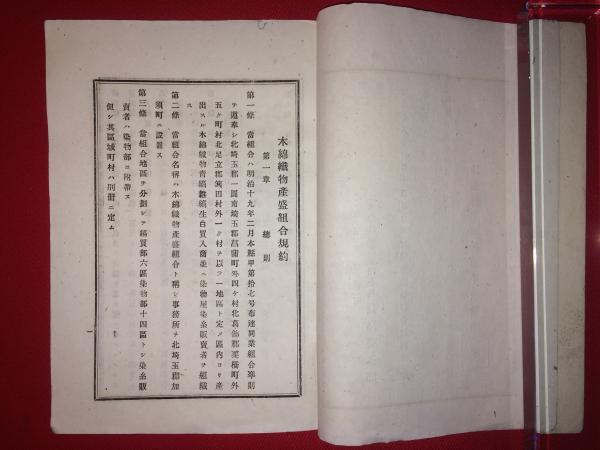 木綿織物產盛組合規約
第一章 總則
第一條 當組合ハ明治十九年二月本縣甲第拾七号布達同業組合準則
ヲ遵奉シ北埼玉郡一圓南埼玉郡菖蒲町外四ケ村北葛飾郡栗橋町外
五ケ町村北足立郡箕田村外一ケ村ヲ以テ一地區ト定メ區內ヨリ產
出スル木綿織物青縞雜縞生白買入商並ニ染物屋染糸販賣者ヲ組織
ス
第二條 當組合名稱ハ木綿織物產盛組合ト稱シ事務所ヲ北埼玉郡加
須町ニ設置ス
第三條 當組合地區ヲ分劃シテ縞買部六區染物部十四區トシ染糸販
賣者ハ染物部ニ附帶ス
但シ其區域町村ハ別冊ニ定ム